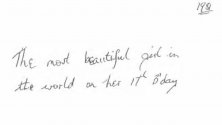 The most beautiful girl in
the world on her 17th B'day